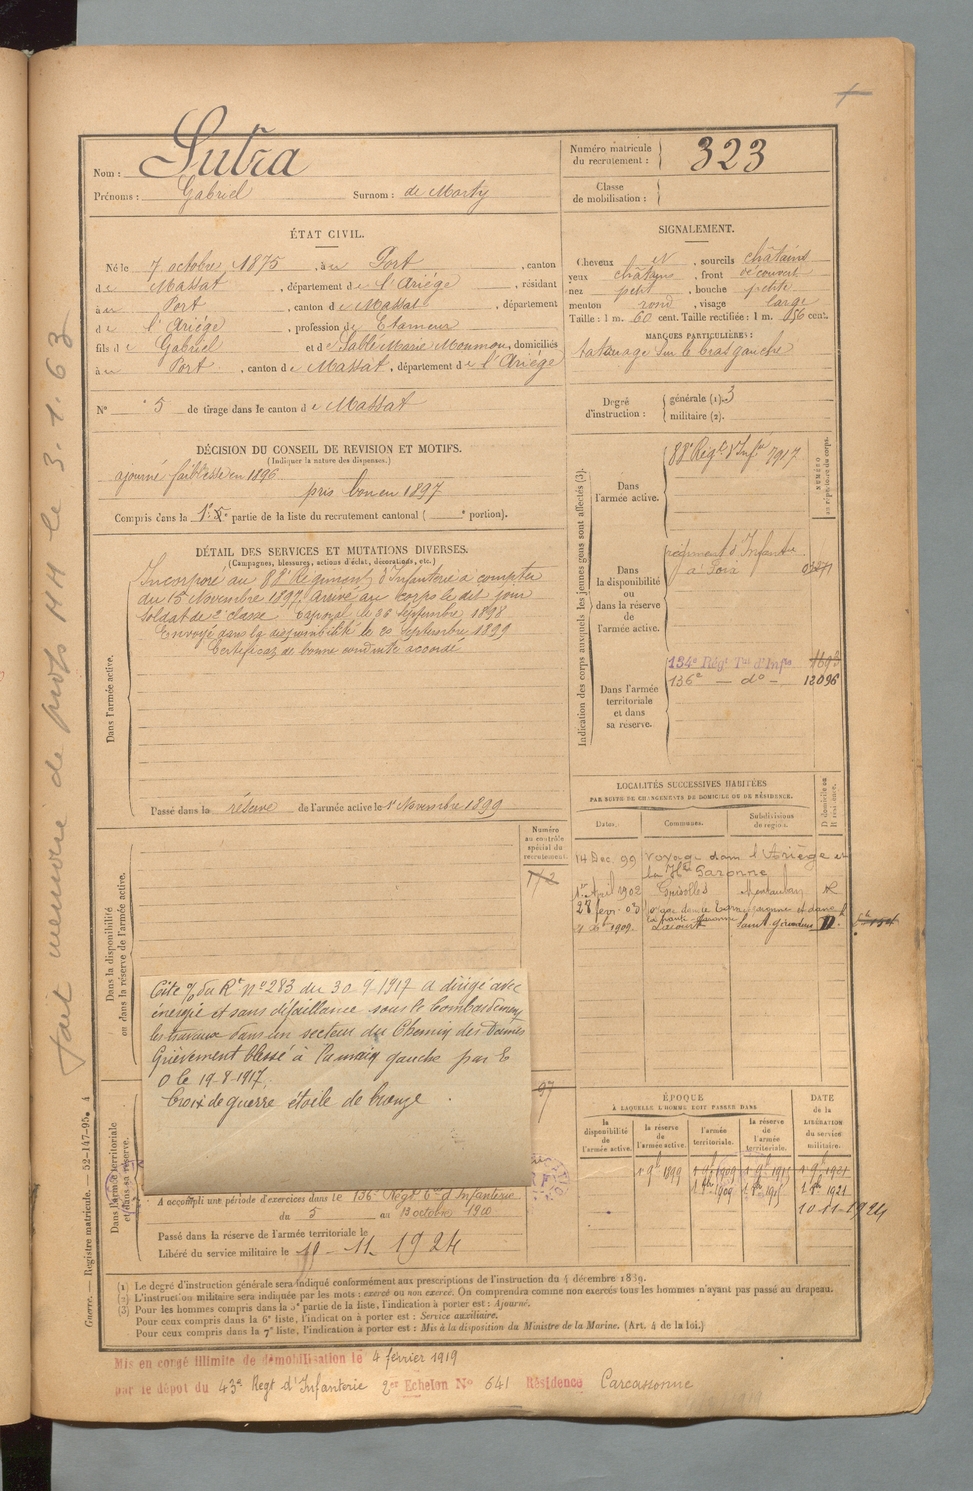 Nom : Sutra
Prénoms : Gabriel Surnom : de Marty
Numéro matricule du recrutement : 323
Classe de mobilisation :
ÉTAT CIVIL.
Né le 7 octobre 1875, à Port, canton
de Massat, département de l'Ariége, résidant
à Port, canton de Massat, département
de l'Ariége, profession de Etameur
fils de Gabriel et de Marie, domiciliés
à Port, canton de Massat, département de l'Ariége
N° 5 de tirage dans le canton de Massat
SIGNALEMENT.
Cheveux et, sourcils châtains
yeux châtains, front découvert
nez petit, bouche petite
menton rond, visage large
Taille : 1 m. 60 cent. Taille rectifiée : 1 m. 656 cent.
MARQUES PARTICULIÈRES :
tatouage sur le bras gauche
Degré d'instruction : générale (1). 3
militaire (2).
DÉCISION DU CONSEIL DE REVISION ET MOTIFS.
(Indiquer la nature des dispenses.)
ajourné faiblesse en 1896
pris bon en 1897
Compris dans la 1e partie de la liste du recrutement cantonal ( e portion).
DÉTAIL DES SERVICES ET MUTATIONS DIVERSES.
(Campagnes, blessures, actions d'éclat, décorations, etc.)
Dans l'armée active.
Incorporé au 88e Régiment d'Infanterie à compter
du 15 Novembre 1897. Arrivé au corps le dit jour
soldat de 2e classe Caporal le Septembre 1898
Envoyé dans la disponibilité le 20 Septembre 1899
Certificat de bonne conduite accordé
Passé dans la réserve de l'armée active le 1er Novembre 1899
Indication des corps auxquels les jeunes gens sont affectés (3).
NUMÉRO au répertoire du corps.
Dans l'armée active.
88e Régt d'Infie 7917
Dans la disponibilité ou dans la réserve de l'armée active.
régiment d'Infanterie
à Foix
Dans l'armée territoriale et dans sa réserve.
134e Régt Tal d'Infie
136e — do — 12096
LOCALITÉS SUCCESSIVES HABITÉES
PAR SUITE DE CHANGEMENTS DE DOMICILE OU DE RÉSIDENCE.
Dates. Communes. Subdivisions de région. D domicile ou R résidence.
14 Dec. 99 Voyage dans l'Ariège et
la Hte Garonne
1er April 1902 Grisolles Montauban R
28 fevr. 03
la haute Garonne
1909. Lacourt Saint Girons D.
Dans la disponibilité ou dans la réserve de l'armée active.
Numéro au contrôle spécial du recrutement.
Cité % du Rt n° 283 du 30 9 1917 A dirigé avec
énergie et sans défaillance sous le bombardement
les travaux dans un secteur du Chemin des Dames
Grièvement blessé à la main gauche par E
O le 19-8-1917,
Croix de guerre étoile de bronze.
Dans l'armée territoriale et dans sa réserve.
A accompli une période d'exercices dans le 136e Régt Tal d'Infanterie
du 5 au 13 octobre
Passé dans la réserve de l'armée territoriale le
Libéré du service militaire le 10 - 11 - 1924
ÉPOQUE
À LAQUELLE L'HOMME DOIT PASSER DANS
DATE de la LIBÉRATION du service militaire.
la disponibilité de l'armée active. la réserve de l'armée active. l'armée territoriale. la réserve de l'armée territoriale.
1 9b 1899 1 9b 1909 1 9b 1915 1 9b 1921
10-11-1924
(1) Le degré d'instruction générale sera indiqué conformément aux prescriptions de l'instruction du 4 décembre 1889.
(2) L'instruction militaire sera indiquée par les mots : exercé ou non exercé. On comprendra comme non exercés tous les hommes n'ayant pas passé au drapeau.
(3) Pour les hommes compris dans la 5e partie de la liste, l'indication à porter est : Ajourné.
Pour ceux compris dans la 6e liste, l'indication à porter est : Service auxiliaire.
Pour ceux compris dans la 7e liste, l'indication à porter est : Mis à la disposition du Ministre de la Marine. (Art. 4 de la loi.)
Mis en congé illimité de démobilisation le 4 février 1919
par le dépôt du 43e Regt d'Infanterie 2er Echelon No 641 Résidence Carcassonne
Guerre. — Registre matricule. — 52-147-95.
fait memoire de prop MH le 3.1.63